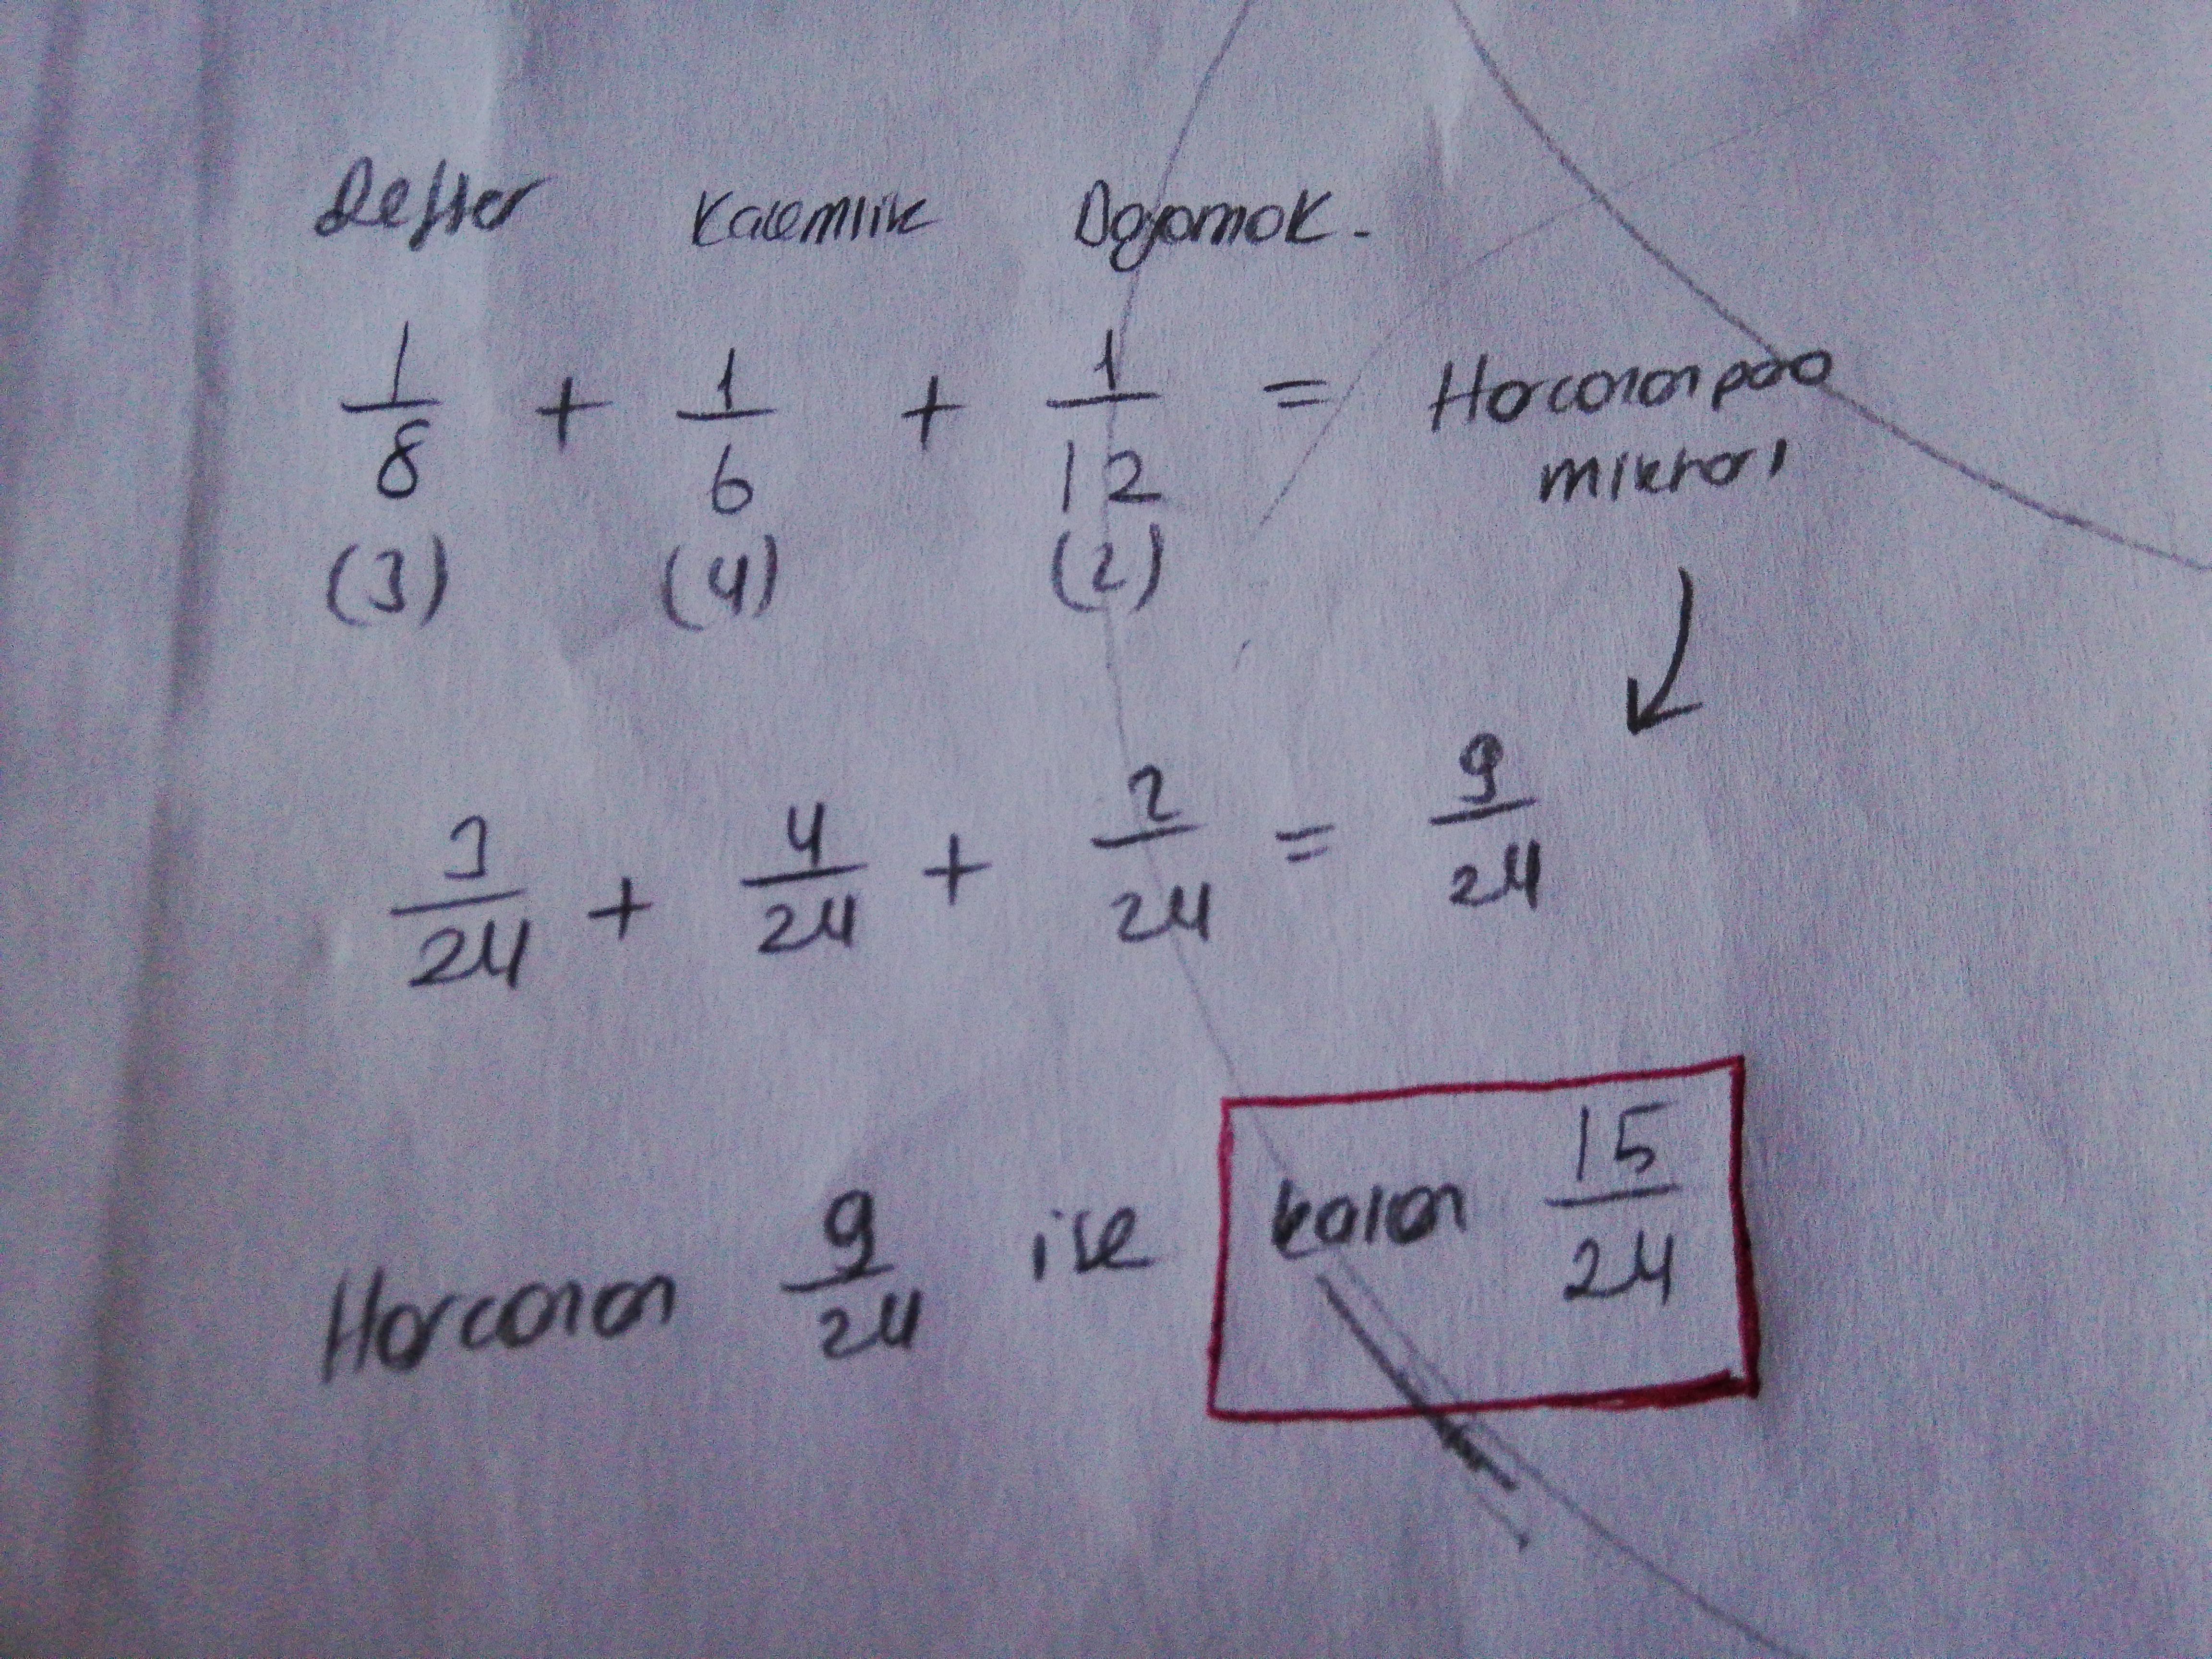 Defter Kalemlik Oyamak.
1/8 + 1/6 + 1/12 = Harcanan para
mıktarı
(3) (4) (2)
3/24 + 4/24 + 2/24 = 9/24
Harcanan 9/24 ise kalan 15/24